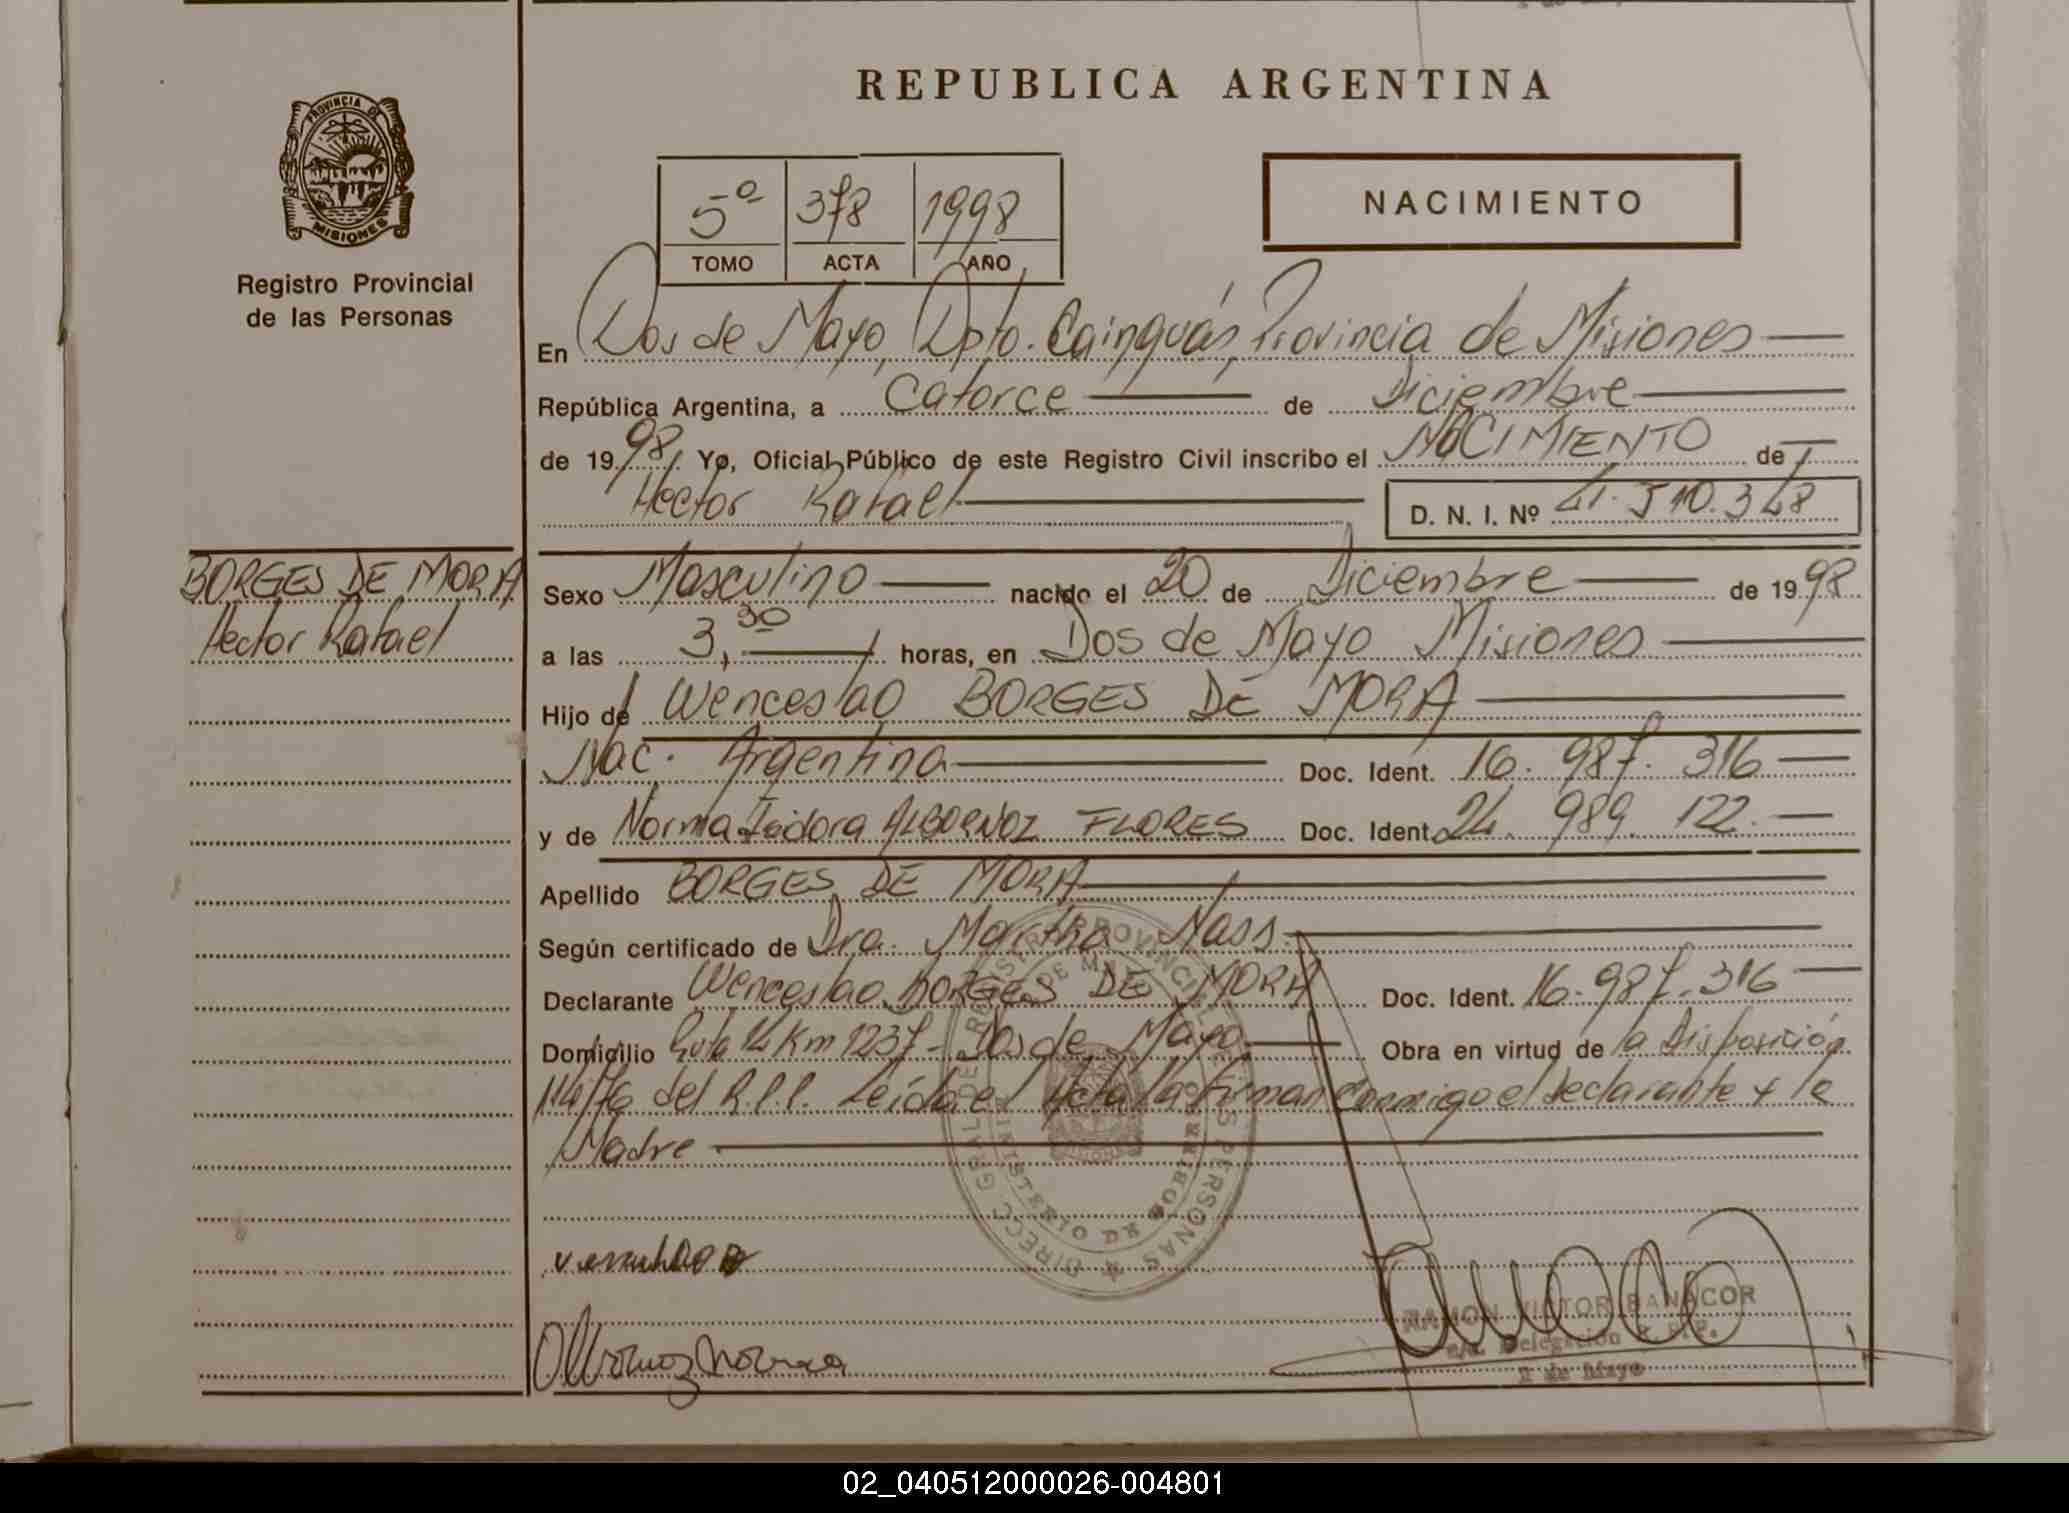 REPUBLICA ARGENTINA
PROVINCIA DE MISIONES
Registro Provincial
de las Personas
5º 378 1998
TOMO ACTA AÑO
NACIMIENTO
En Dos de Mayo, Dpto. Cainguás, Provincia de Misiones
República Argentina, a Catorce de Diciembre
de 1998. Yo, Oficial Público de este Registro Civil inscribo el NACIMIENTO de
Hector Rafael D. N. I. Nº
BORGES DE MORA
Hector Rafael
Sexo Masculino nacido el 20 de Diciembre de 1998
a las 3,30 horas, en Dos de Mayo Misiones
Hijo de Wenceslao BORGES DE MORA
Nac. Argentina Doc. Ident. 16.987.316
y de Norma Isidora ALBORNOZ FLORES Doc. Ident. 24.989.122.
Apellido BORGES DE MORA
Según certificado de Dra. Martha Nass
Declarante Wenceslao BORGES DE MORA Doc. Ident. 16.987.316
Domicilio Ruta 14 Km 1237 - Dos de Mayo Obra en virtud de la Disposición
114/76 del R.P.P. Leída el Acta la firman conmigo el declarante y la
Madre
DIRECC. GRAL. DE REGISTRO PROVINCIAL DE LAS PERSONAS
MINISTERIO DE GOBIERNO
Albornoz Norma
RAMON VICTOR BANACOR
Delegación R.P.P.
2 de Mayo
02_040512000026-004801